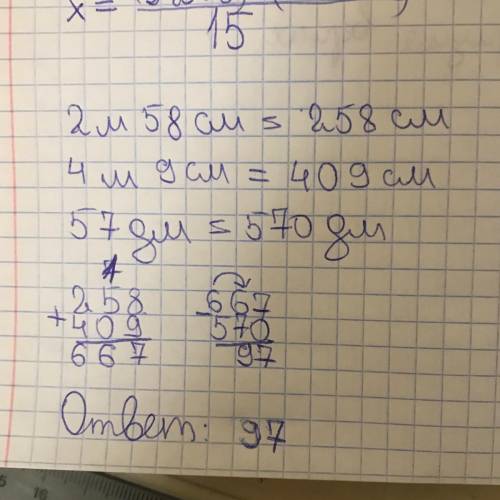 x=
15
2м 58 см = 258 см
4 м 9 см = 409 см
57 дм = 570 дм
1
258
+409
667
-667
570
97
Ответ: 97